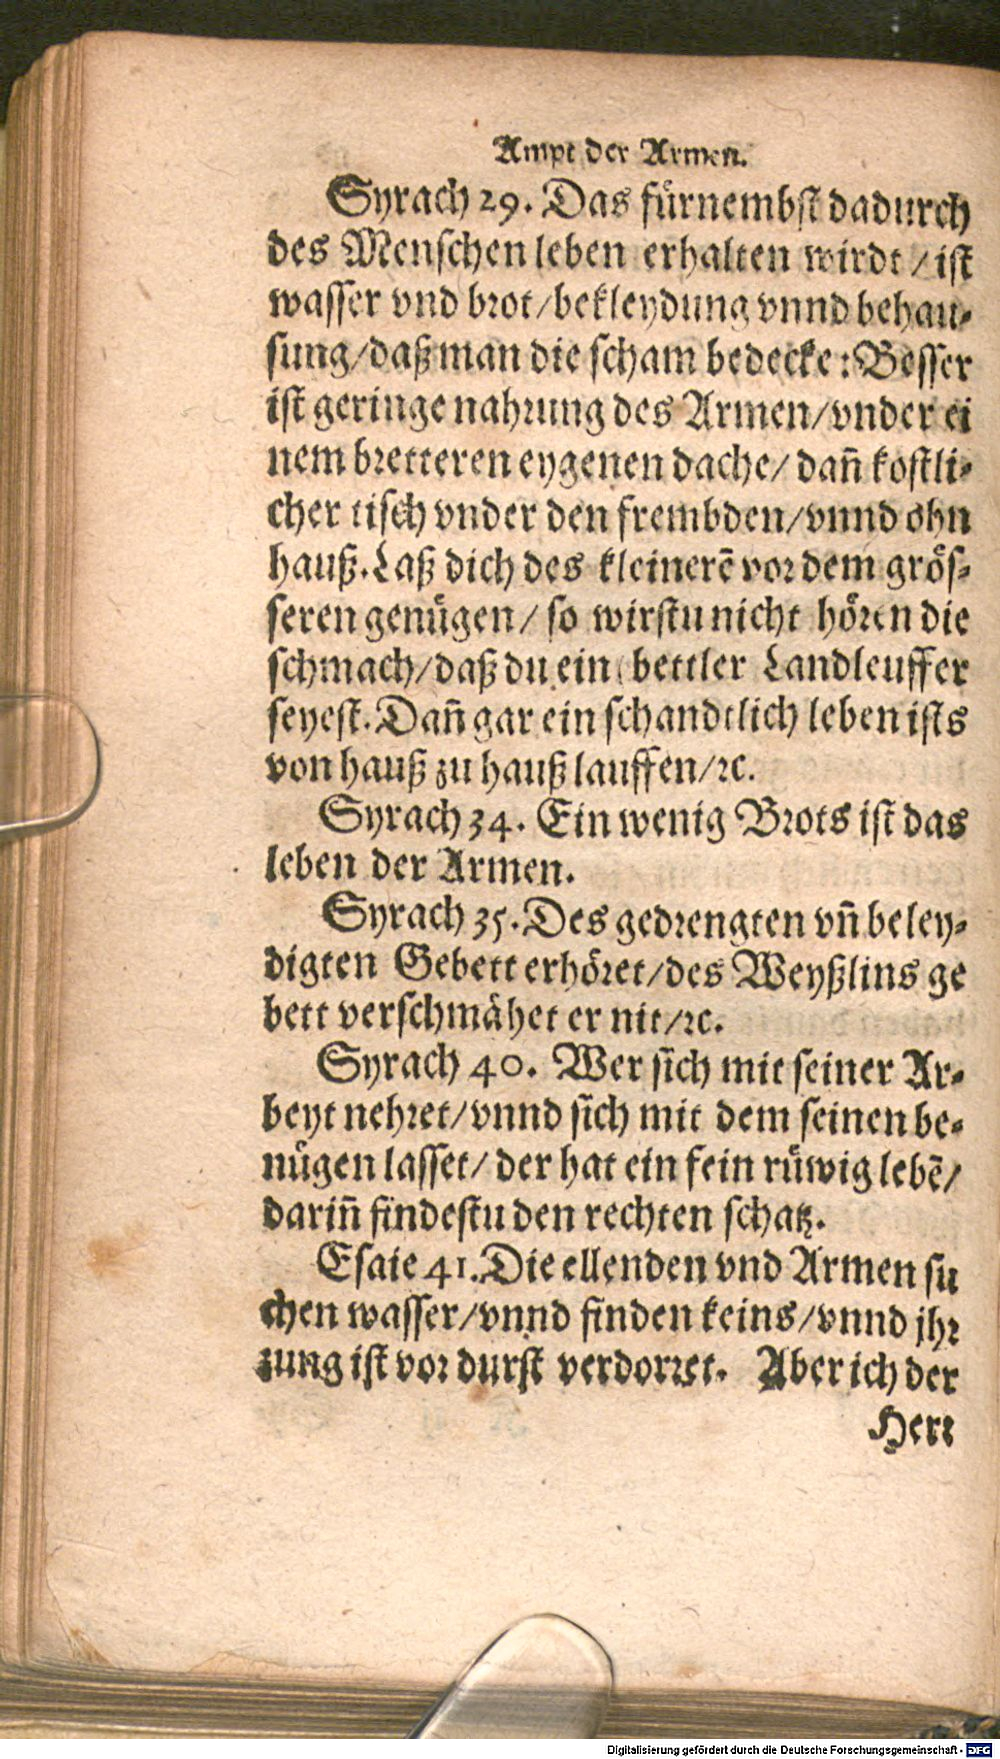 Ampt der Armen.
Syrach 29. Das fürnembst dadurch
des Menschen leben erhalten wirdt / ist
wasser vnd brot/bekleydung vnnd behau-
sung/daß man die scham bedecke: Besser
ist geringe nahrung des Armen/vnder ei
nem bretteren eygenen dache/ dañ kostli-
cher tisch vnder den frembden/vnnd ohn
hauß. Laß dich des kleinerē vor dem grös-
seren genügen/ so wirstu nicht hören die
schmach/daß du ein bettler Landleuffer
seyest. Dañ gar ein schandtlich leben ists
von hauß zu hauß lauffen/ꝛc.
Syrach 34. Ein wenig Brots ist das
leben der Armen.
Syrach 35. Des gedrengten vñ beley-
digten Gebett erhöret/des Weyßlins ge
bett verschmähet er nit/ꝛc.
Syrach 40. Wer sich mit seiner Ar-
beyt nehret/vnnd sich mit dem seinen be-
nügen lasset/ der hat ein fein rüwig lebē/
dariñ findestu den rechten schatz.
Esaie 41. Die ellenden vnd Armen su
chen wasser/vnnd finden keins/vnnd jhr
zung ist vor durst verdorret. Aber ich der
Herr
Digitalisierung gefördert durch die Deutsche Forschungsgemeinschaft - DFG